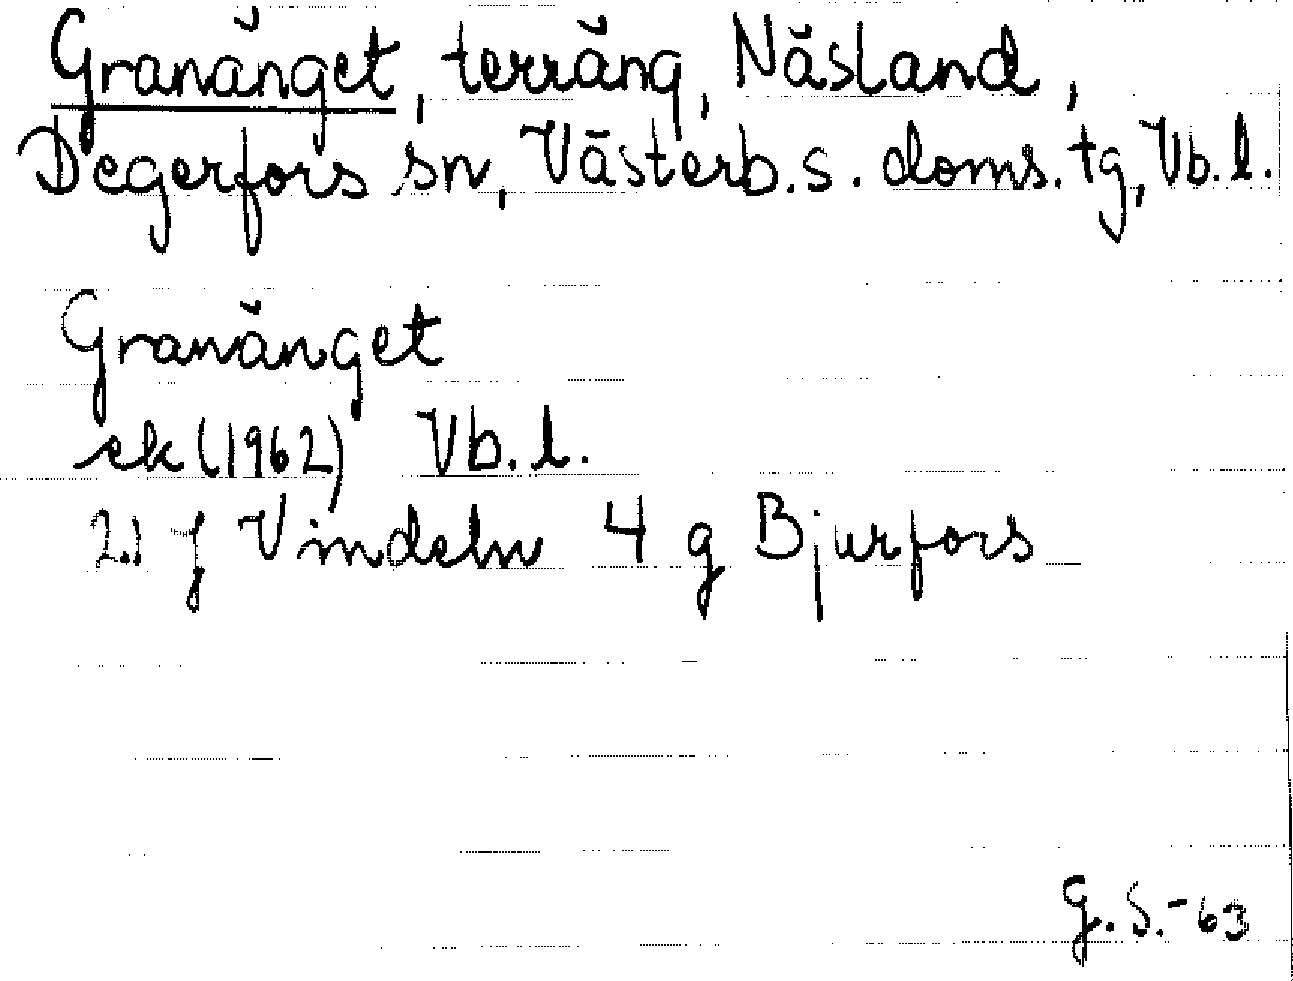 Granänget, terräng, Näsland,
Degerfors sn, Västerb.s. doms.tg, Vb.l.
Granänget
ek (1962) Vb.l.
21 J Vindeln 4 g Bjurfors
G.S.-63